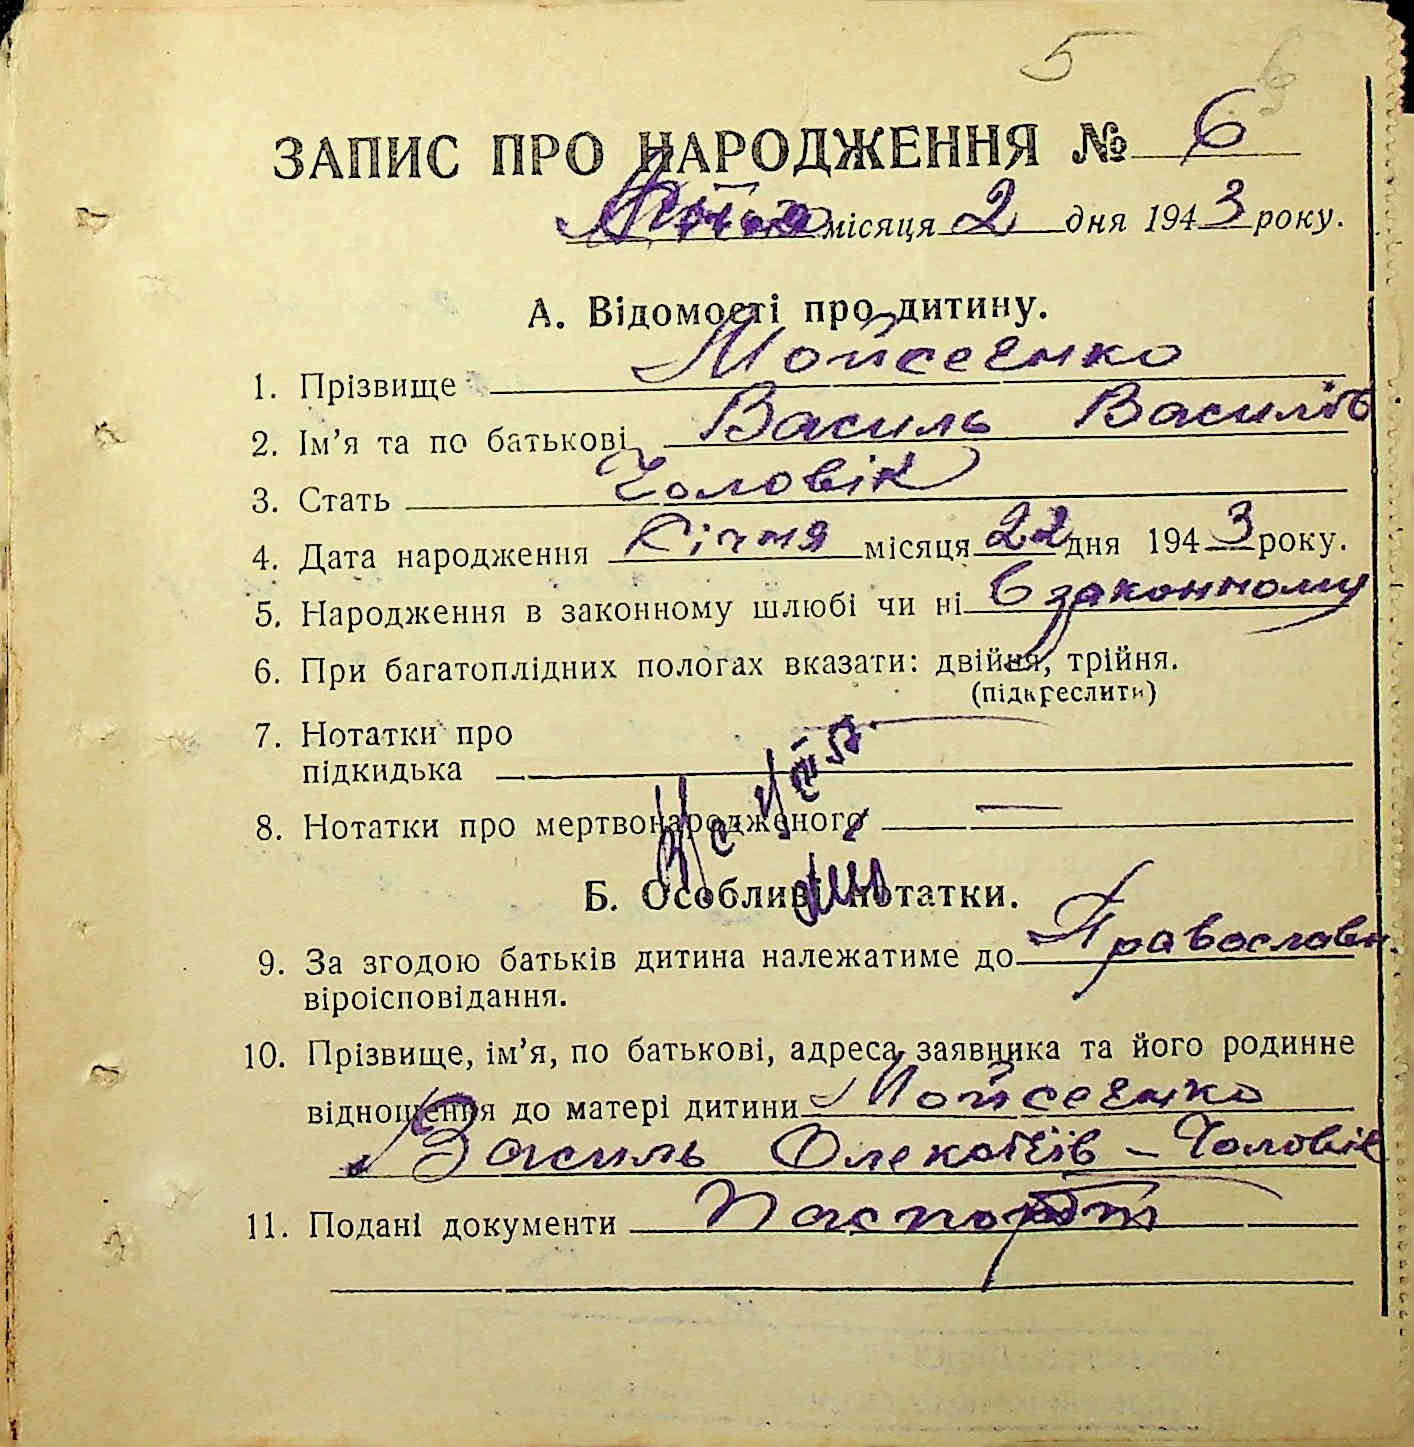 5 6
ЗАПИС ПРО НАРОДЖЕННЯ № 6
місяця 2 дня 1943 року.
А. Відомості про дитину.
1. Прізвище Мойсеенко
2. Ім’я та по батькові Василь Василів
3. Стать Чоловік
4. Дата народження Січня місяця 22 дня 1943 року.
5. Народження в законному шлюбі чи ні В законному
6. При багатоплідних пологах вказати: двійня, трійня.
(підкреслити)
7. Нотатки про
підкидька —
8. Нотатки про мертвонародженого —
Б. Особливі нотатки.
9. За згодою батьків дитина належатиме до Православн.
віроісповідання.
10. Прізвище, ім’я, по батькові, адреса заявника та його родинне
відношення до матері дитини Мойсеенко
Василь – Чоловік
11. Подані документи Паспорт